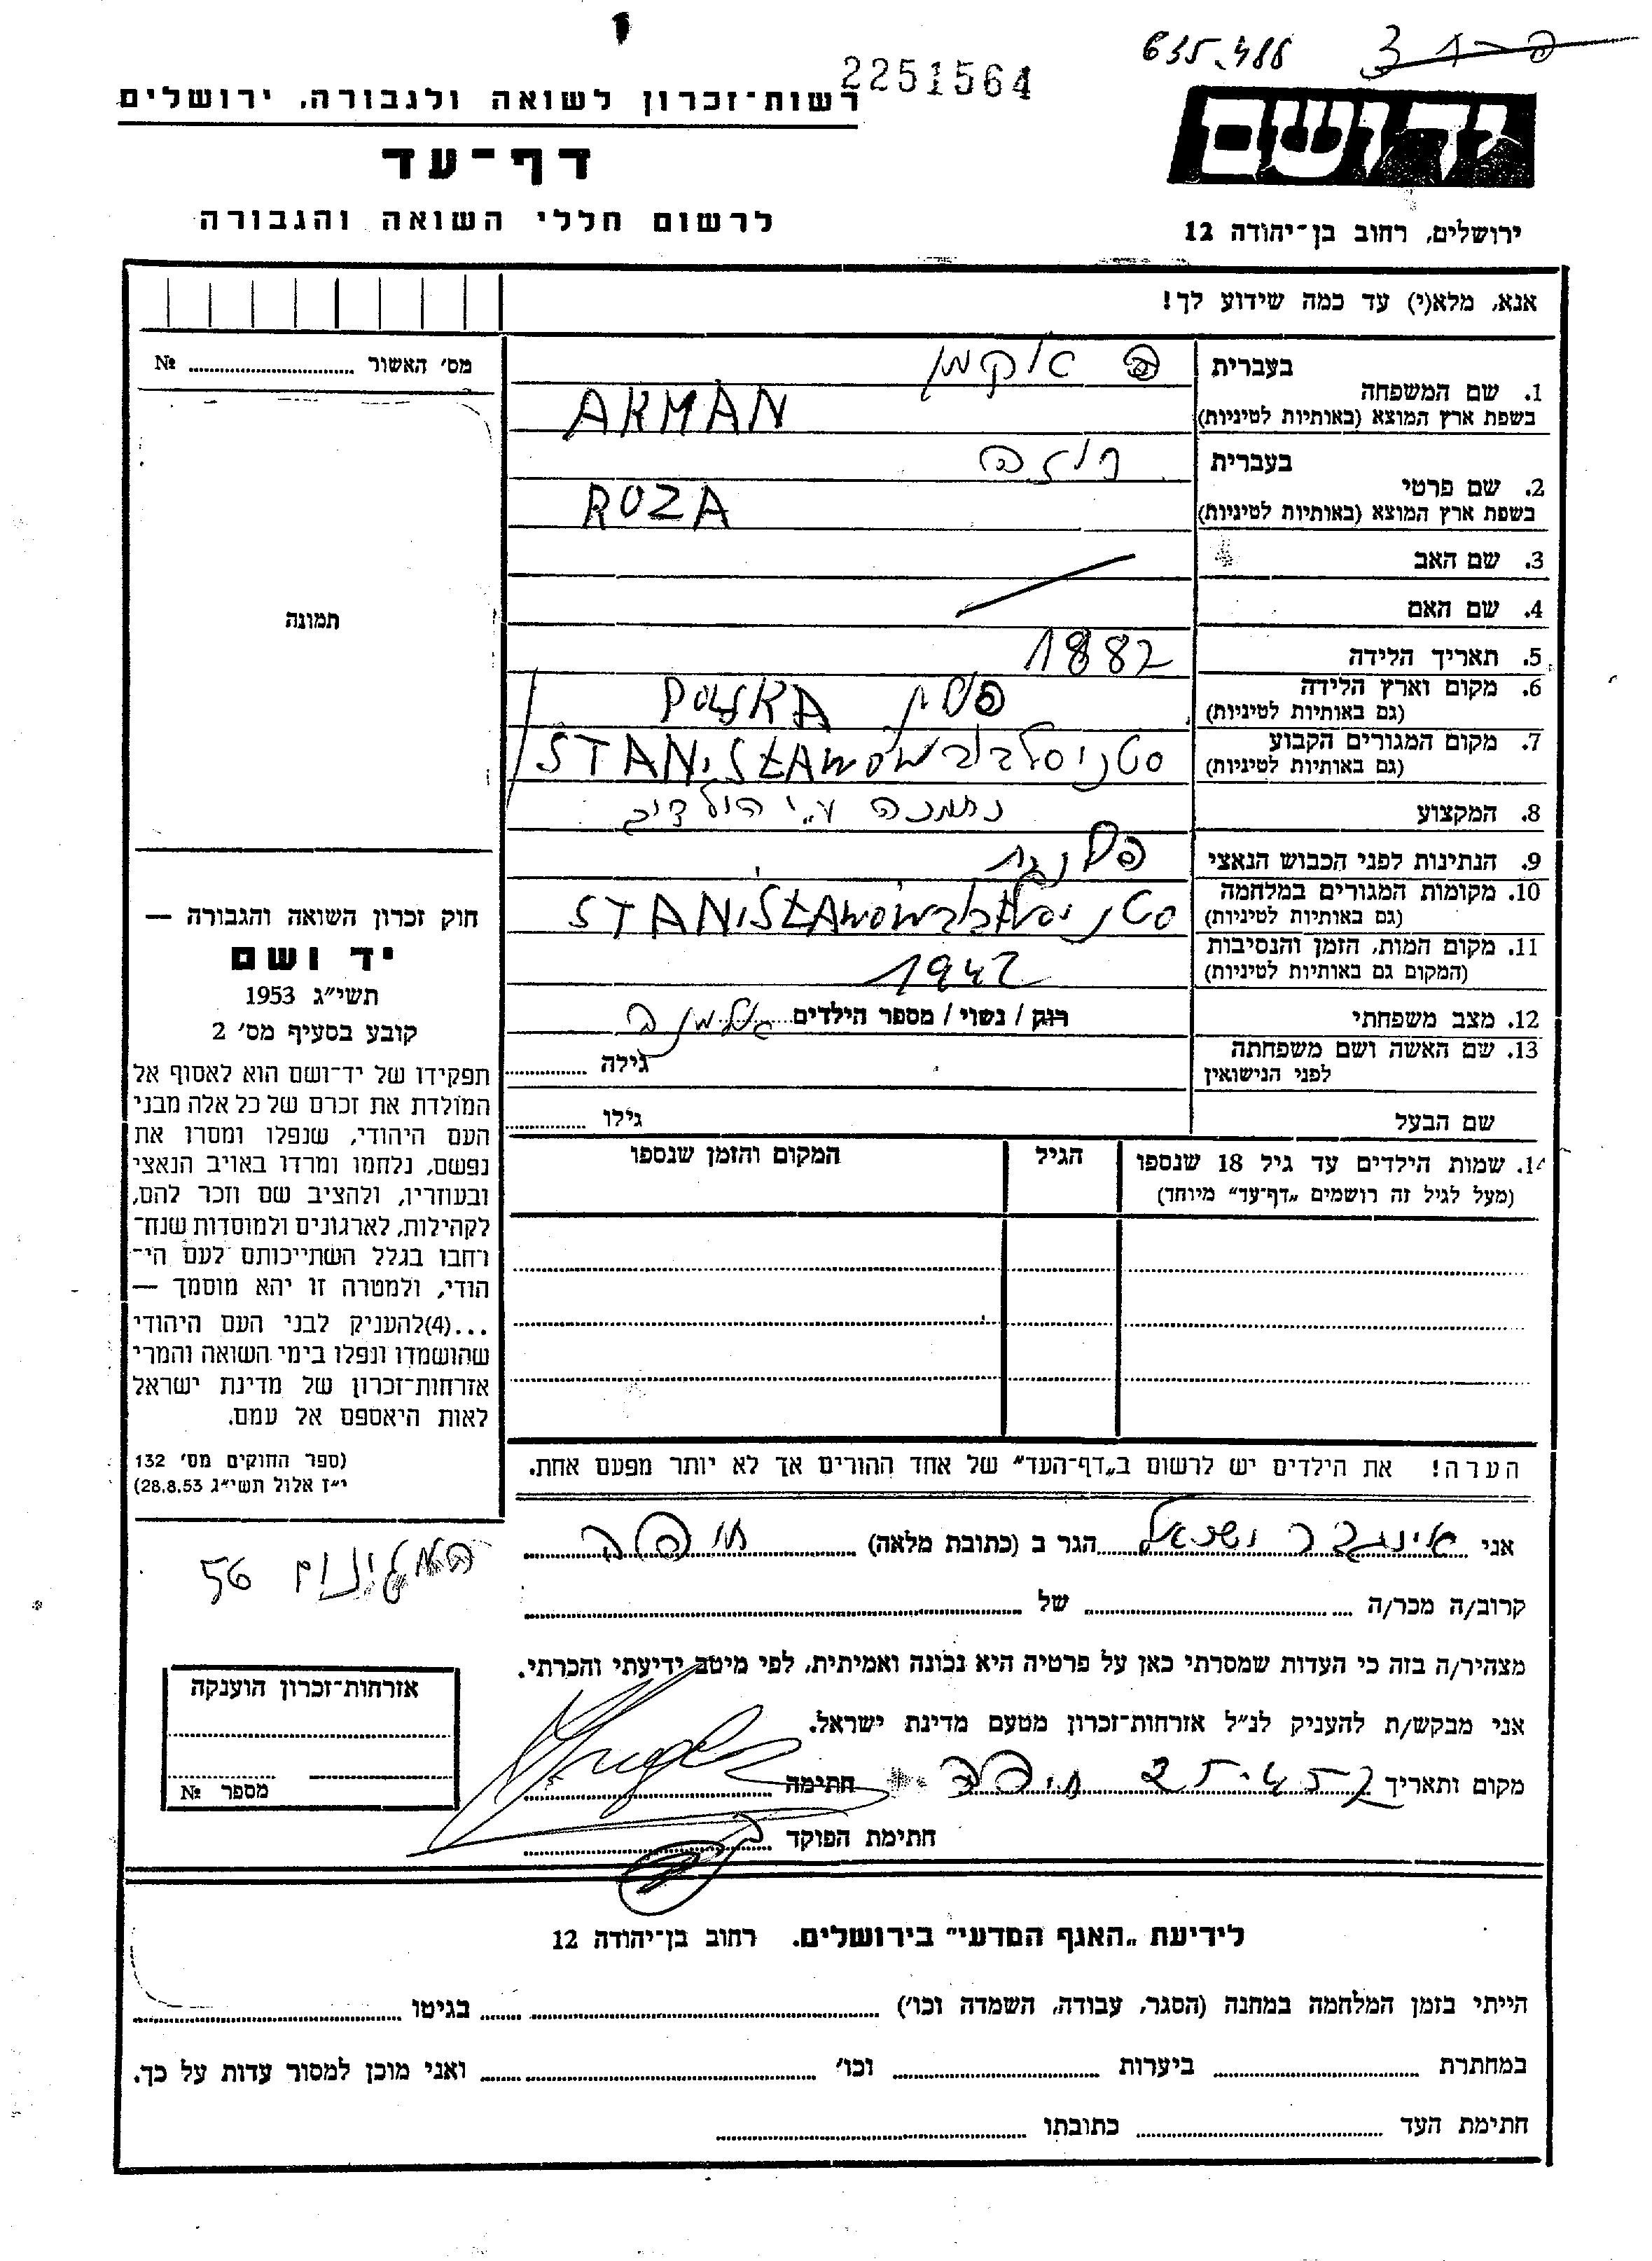 635.488
2251564
רשות־זכרון לשואה ולגבורה, ירושלים
דף־עד
לרשום חללי השואה והגבורה
יד ושם
ירושלים, רחוב בן־יהודה 12
אנא, מלא(י) עד כמה שידוע לך!
מס׳ האשור № 
תמונה
בעברית אקמן
1. שם המשפחה
בשפת ארץ המוצא (באותיות לטיניות) AKMAN
בעברית רוזה
2. שם פרטי
בשפת ארץ המוצא (באותיות לטיניות) ROZA
3. שם האב
4. שם האם
5. תאריך הלידה 1882
6. מקום וארץ הלידה פולין POLSKA
(גם באותיות לטיניות)
7. מקום המגורים הקבוע סטניסלבוב STANISŁAWOW
(גם באותיות לטיניות)
8. המקצוע נתמכה ע״י הולדיה
9. הנתינות לפני הכבוש הנאצי פולנית
10. מקומות המגורים במלחמה סטניסלבוב STANISŁAWOW
(גם באותיות לטיניות)
11. מקום המות, הזמן והנסיבות 1942
(המקום גם באותיות לטיניות)
12. מצב משפחתי רווק / נשוי / מספר הילדים אלמנה
13. שם האשה ושם משפחתה
לפני הנישואין
גילה
שם הבעל גילו
14. שמות הילדים עד גיל 18 שנספו הגיל המקום והזמן שנספו
(מעל לגיל זה רושמים „דף־עד״ מיוחד)
הערה! את הילדים יש לרשום ב„דף־העד״ של אחד ההורים אך לא יותר מפעם אחת.
חוק זכרון השואה והגבורה —
יד ושם
תשי״ג 1953
קובע בסעיף מס׳ 2
תפקידו של יד־ושם הוא לאסוף אל
המולדת את זכרם של כל אלה מבני
העם היהודי, שנפלו ומסרו את
נפשם, נלחמו ומרדו באויב הנאצי
ובעוזריו, ולהציב שם וזכר להם,
לקהילות, לארגונים ולמוסדות שנח־
רחבו בגלל השתייכותם לעם הי־
הודי, ולמטרה זו יהא מוסמך —
...(4)להעניק לבני העם היהודי
שהושמדו ונפלו בימי השואה והמרי
אזרחות־זכרון של מדינת ישראל
לאות היאספם אל עמם.
(ספר החוקים מס׳ 132
י״ז אלול תשי״ג 28.8.53)
אני אינגבר ישראל הגר ב (כתובת מלאה) חיפה
56
קרוב/ה מכר/ה של
מצהיר/ה בזה כי העדות שמסרתי כאן על פרטיה היא נכונה ואמיתית, לפי מיטב ידיעתי והכרתי.
אני מבקש/ת להעניק לנ״ל אזרחות־זכרון מטעם מדינת ישראל.
מקום ותאריך חיפה חתימה
חתימת הפוקד
אזרחות־זכרון הוענקה
מספר №
לידיעת „האגף המדעי״ בירושלים. רחוב בן־יהודה 12
הייתי בזמן המלחמה במחנה (הסגר, עבודה, השמדה וכו׳) בגיטו
במחתרת ביערות וכו׳ ואני מוכן למסור עדות על כך.
חתימת העד כתובתו